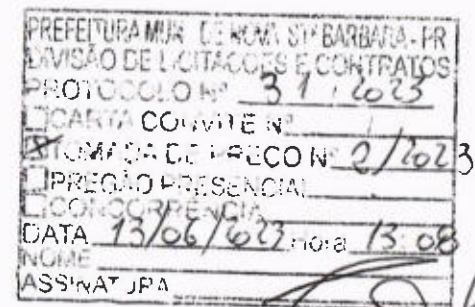 PREFEITURA MUN. DE NOVA STª BARBARA - PR
DIVISÃO DE LICITAÇOES E CONTRATOS
PROTOCOLO Nº 31 / 2023
CARTA CONVITE Nº /
TOMADA DE PREÇO Nº 2/2023
PREGÃO PRESENCIAL
CONCORRÊNCIA
DATA 13/06/2023 Hora 13:08
NOME
ASSINATURA